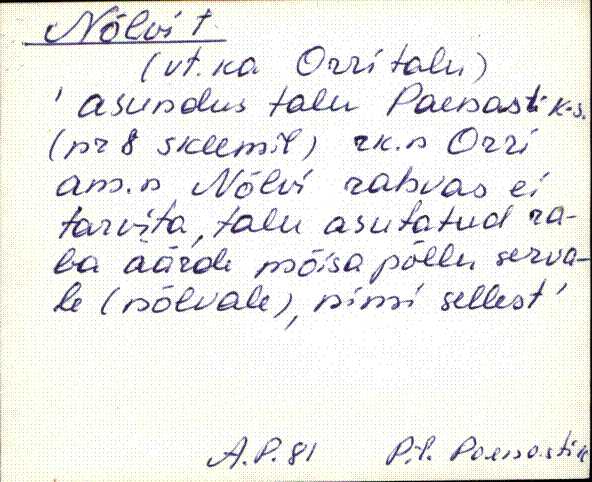 Nõlvi t.
(vt. ka Orri talu)
' asundus talu Paenasti k-s.
(nr 8 skeemil) rk.n Orri
am.n Nõlvi rahvas ei
tarvita, talu asutatud ra-
ba äärde mõisa põllu serva-
le (nõlvale), nimi sellest '
A.P. 81 Pil. Paenasti k